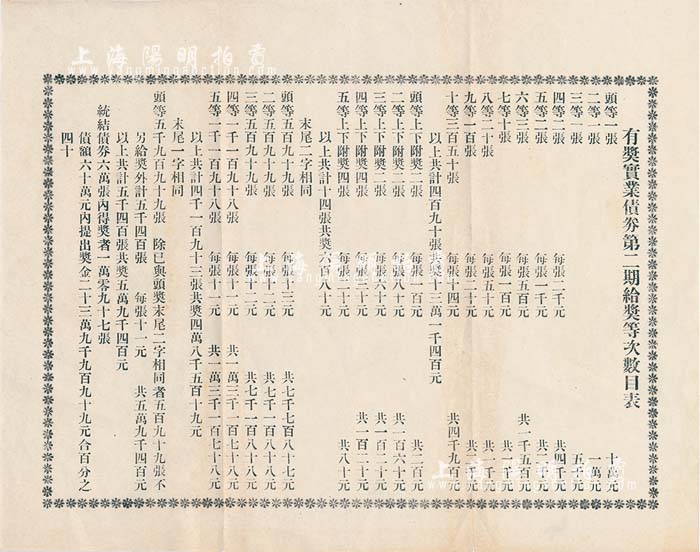 有獎實業債券第二期給獎等次數目表
頭等一張 十萬元
二等一張 一萬元
三等一張 五千元
四等二張 每張二千元 共四千元
五等二張 每張一千元 共二千元
六等三張 每張五百元 共一千五百元
七等十張 每張一百元 共一千元
八等二十張 每張五十元 共一千元
九等一百張 每張二十元 共二千元
十等三百五十張 每張十四元 共四千九百元
以上共計四百九十張共獎十三萬一千四百元
頭等上下附獎二張 每張一百元 共二百元
二等上下附獎二張 每張八十元 共一百六十元
三等上下附獎二張 每張六十元 共一百二十元
四等上下附獎四張 每張三十元 共一百二十元
五等上下附獎四張 每張二十元 共八十元
以上共計十四張共獎六百八十元
末尾二字相同
頭等五百九十九張 每張十三元 共七千七百八十七元
二等五百九十九張 每張十二元 共七千一百八十八元
三等五百九十九張 每張十二元 共七千一百八十八元
四等一千一百九十八張 每張十一元 共一萬三千一百七十八元
五等一千一百九十八張 每張十一元 共一萬三千一百七十八元
以上共計四千一百九十三張共獎四萬八千五百十九元
末尾一字相同
頭等五千九百九十九張 除已與頭獎末尾二字相同者五百九十九張不
另給獎外計五千四百張 每張十一元 共五萬九千四百元
以上共計五千四百張共獎五萬九千四百元
統結債券六萬張內得獎者一萬零九十七張
債額六十萬元內提出獎金二十三萬九千九百九十九元合百分之
四十
上海陽明拍賣